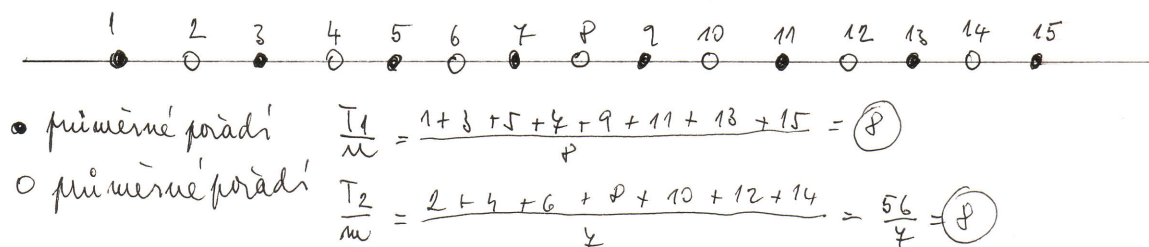 1 2 3 4 5 6 7 8 9 10 11 12 13 14 15
● průměrné pořadí T1/m = (1+3+5+7+9+11+13+15)/8 = 8
○ průměrné pořadí T2/m = (2+4+6+8+10+12+14)/7 = 56/7 = 8